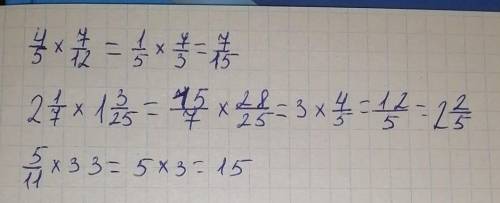 4/5 × 7/12 = 1/5 × 7/3 = 7/15
2 1/7 × 1 3/25 = 15/7 × 28/25 = 3 × 4/5 = 12/5 = 2 2/5
5/11 × 33 = 5 × 3 = 15